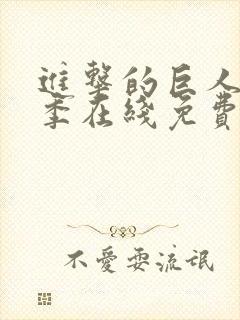 進擊的巨人
季在綫免費
不愛耍流氓